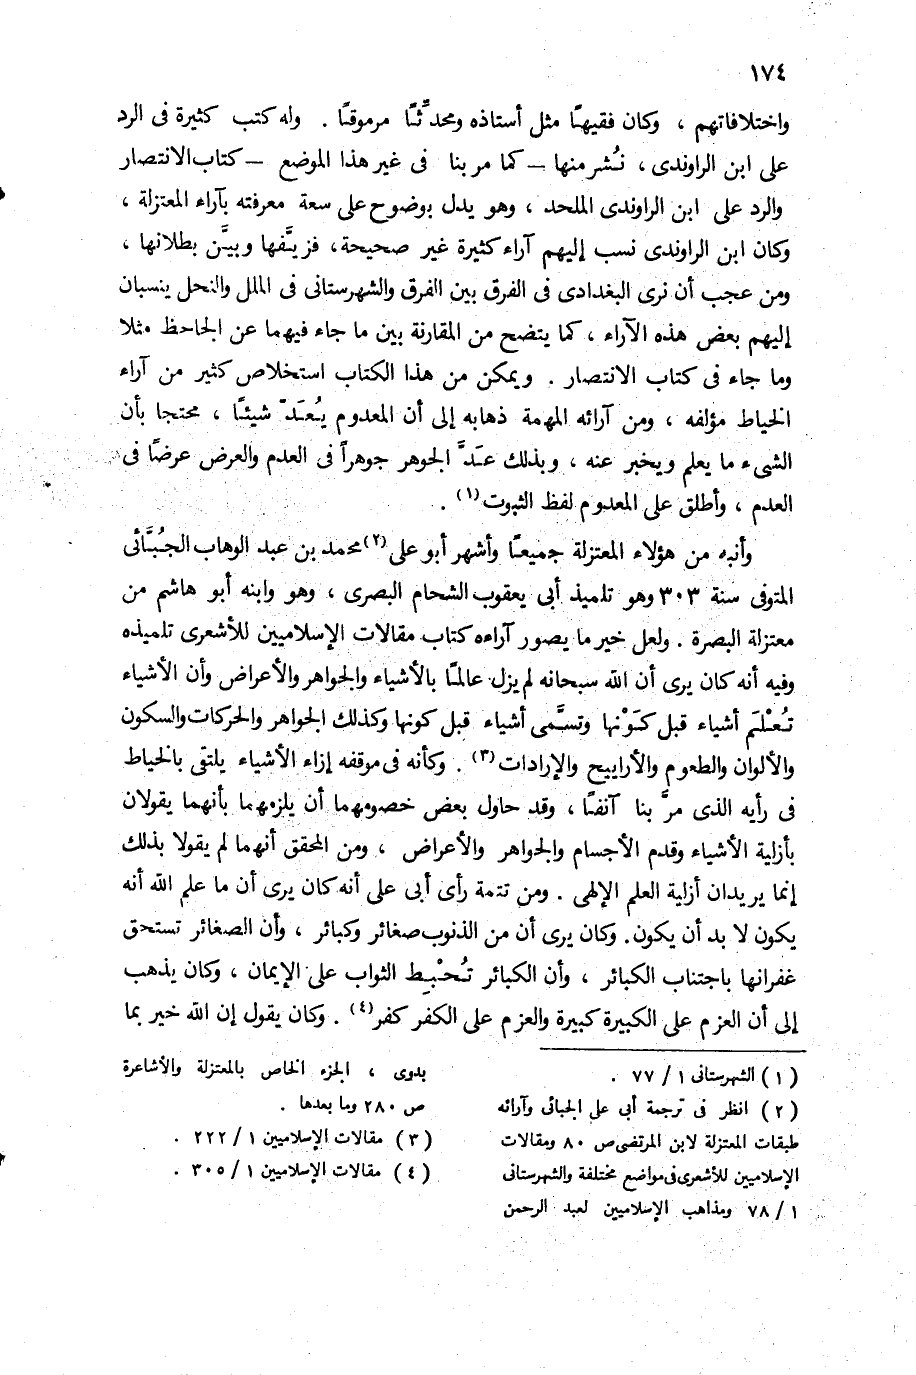 ١٧٤
واختلافاتهم ، وكان فقيهًا مثل أستاذه ومحدِّثًا مرموقًا . وله كتب كثيرة فى الرد
على ابن الراوندى ، نُشر منها – كما مر بنا فى غير هذا الموضع – كتاب الانتصار
والرد على ابن الراوندى الملحد ، وهو يدل بوضوح على سعة معرفته بآراء المعتزلة ،
وكان ابن الراوندى نسب إليهم آراء كثيرة غير صحيحة ، فزيَّفها وبيَّن بطلانها ،
ومن عجب أن نرى البغدادى فى الفرق بين الفرق والشهرستانى فى الملل والنحل ينسبان
إليهم بعض هذه الآراء ، كما يتضح من المقارنة بين ما جاء فيهما عن الجاحظ مثلا
وما جاء فى كتاب الانتصار . ويمكن من هذا الكتاب استخلاص كثير من آراء
الخياط مؤلفه ، ومن آرائه المهمة ذهابه إلى أن المعدوم يُعَدّ شيئًا ، محتجا بأن
الشىء ما يعلم ويخبر عنه ، وبذلك عَدَّ الجوهر جوهراً فى العدم والعرض عرضًا فى
العدم ، وأطلق على المعدوم لفظ الثبوت(١) .
وأنبه من هؤلاء المعتزلة جميعًا وأشهر أبو على (٢) محمد بن عبد الوهاب الجُبَّائى
المتوفى سنة ٣٠٣ وهو تلميذ أبى يعقوب الشحام البصرى ، وهو وابنه أبو هاشم من
معتزلة البصرة . ولعل خير ما يصور آراءه كتاب مقالات الإسلاميين للأشعرى تلميذه
وفيه أنه كان يرى أن الله سبحانه لم يزل عالمًا بالأشياء والجواهر والأعراض وأن الأشياء
تُعْلَم أشياء قبل كَوْنها وتسمَّى أشياء قبل كونها وكذلك الجواهر والحركات والسكون
والألوان والطعوم والأراييح والإرادات(٣) . وكأنه فى موقفه إزاء الأشياء يلتقى بالخياط
فى رأيه الذى مرَّ بنا آنفًا ، وقد حاول بعض خصومهما أن يلزمهما بأنهما يقولان
بأزلية الأشياء وقدم الأجسام والجواهر والأعراض ، ومن المحقق أنهما لم يقولا بذلك
إنما يريدان أزلية العلم الإلهى . ومن تتمة رأى أبى على أنه كان يرى أن ما علم الله أنه
يكون لا بد أن يكون. وكان يرى أن من الذنوب صغائر وكبائر ، وأن الصغائر تستحق
غفرانها باجتناب الكبائر ، وأن الكبائر تُحْبِط الثواب على الإيمان ، وكان يذهب
إلى أن العزم على الكبيرة كبيرة والعزم على الكفر كفر(٤) . وكان يقول إن الله خير بما
(١) الشهرستانى ١ / ٧٧ .
(٢) انظر فى ترجمة أبى على الجبائى وآرائه
طبقات المعتزلة لابن المرتضى ص ٨٠ ومقالات
الإسلاميين للأشعرى فى مواضع مختلفة والشهرستانى
١ / ٧٨ ومذاهب الإسلاميين لعبد الرحمن
بدوى ، الجزء الخاص بالمعتزلة والأشاعرة
ص ٢٨٠ وما بعدها .
(٣) مقالات الإسلاميين ١ / ٢٢٢ .
(٤) مقالات الإسلاميين ١ / ٣٠٥ .